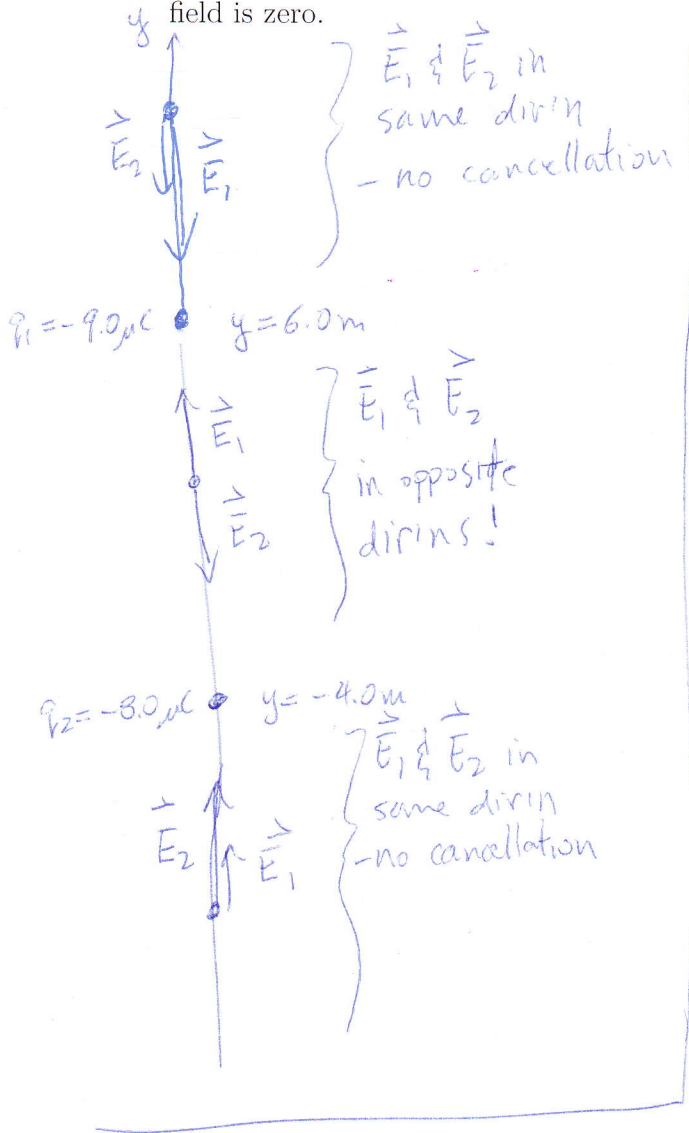 field is zero.
y
E⃗₁ & E⃗₂ in
same dir'n
- no cancellation
E⃗₂ E⃗₁
q₁ = -9.0 μC y = 6.0 m
E⃗₁ & E⃗₂
in opposite
dir'ns!
E⃗₁
E⃗₂
q₂ = -8.0 μC y = -4.0 m
E⃗₁ & E⃗₂ in
same dir'n
- no cancellation
E⃗₂ E⃗₁